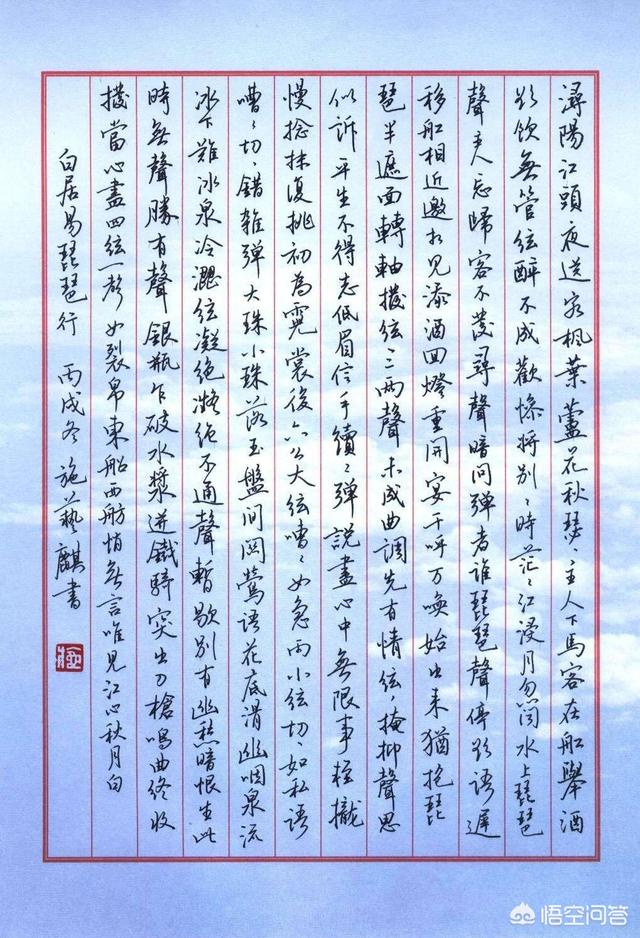 潯陽江頭夜送客楓葉蘆花秋瑟、主人下馬客在船舉酒
欲飲無管弦醉不成歡慘將別、時茫、江浸月忽聞水上琵琶
聲主人忘歸客不發尋聲暗問彈者誰琵琶聲停欲語遲
移船相近邀相見添酒回燈重開宴千呼万喚始出來猶抱琵
琶半遮面轉軸撥弦三兩聲未成曲調先有情弦、掩抑聲思
似訴平生不得志低眉信手續、彈說盡心中無限事輕攏
慢捻抹復挑初為霓裳後六幺大弦嘈、如急雨小弦切、如私語
嘈、切、錯雜彈大珠小珠落玉盤間關鶯語花底滑幽咽泉流
冰下難冰泉冷澀弦凝絕凝絕不通聲暫歇別有幽愁暗恨生此
時無聲勝有聲銀瓶乍破水漿迸鐵騎突出刀槍鳴曲終收
撥當心畫四弦一聲如裂帛東船西舫悄無言唯見江心秋月白
白居易琵琶行 丙戌冬 施藝麒書
悟空问答